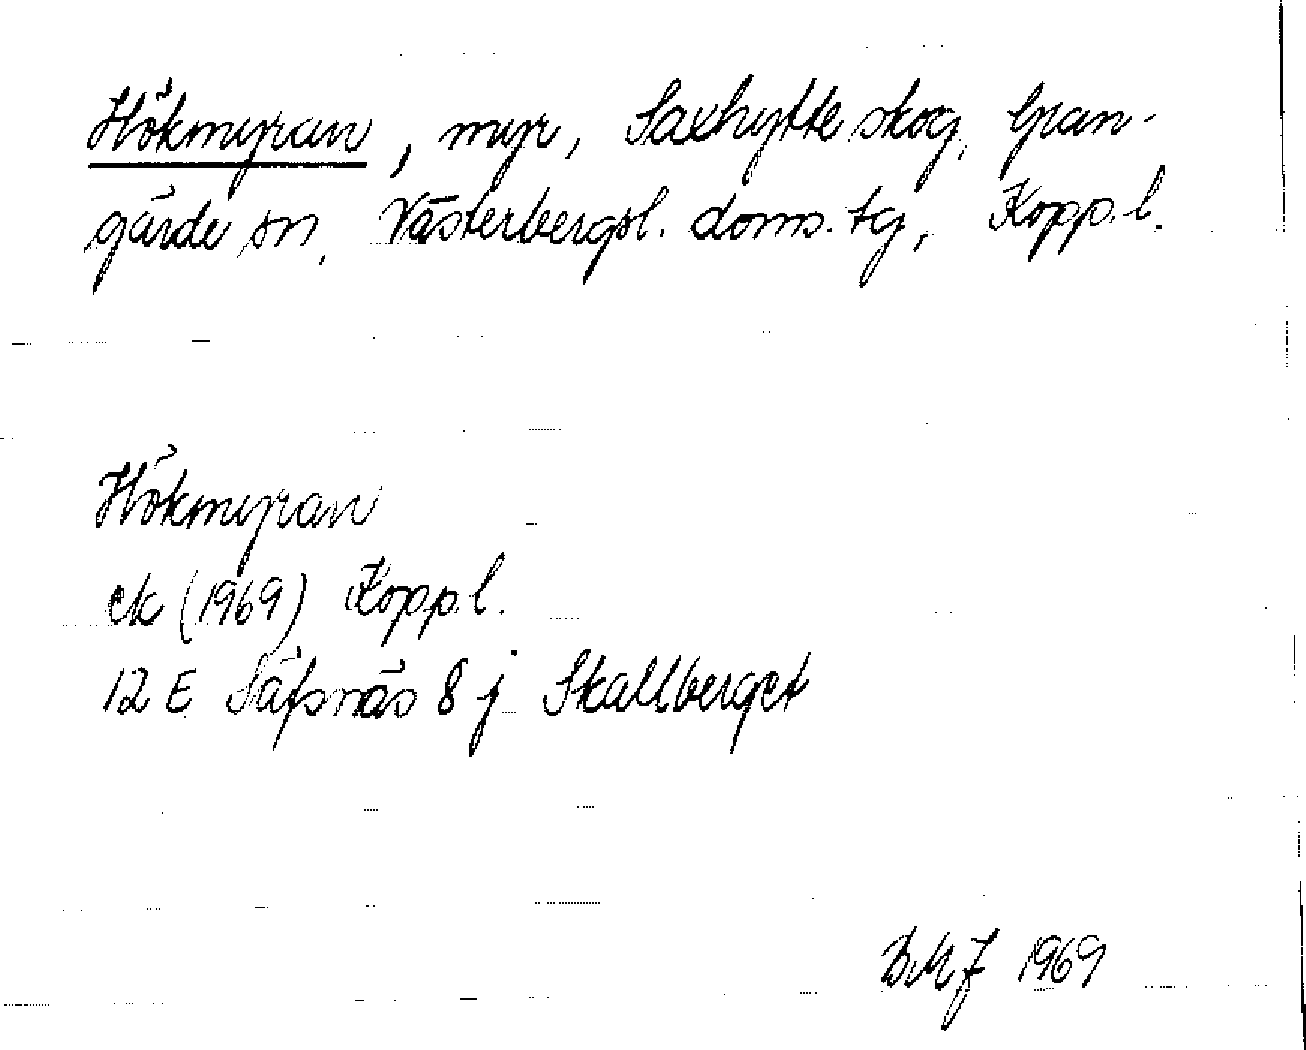 Hökmyran, myr, Saxhytte skog, Gran-
gärde sn, Västerbergsl. doms. tg, Kopp. l.
Hökmyran
ek (1969) Kopp. l.
12 E Säfsnäs 8 j Skallberget
BMJ 1969